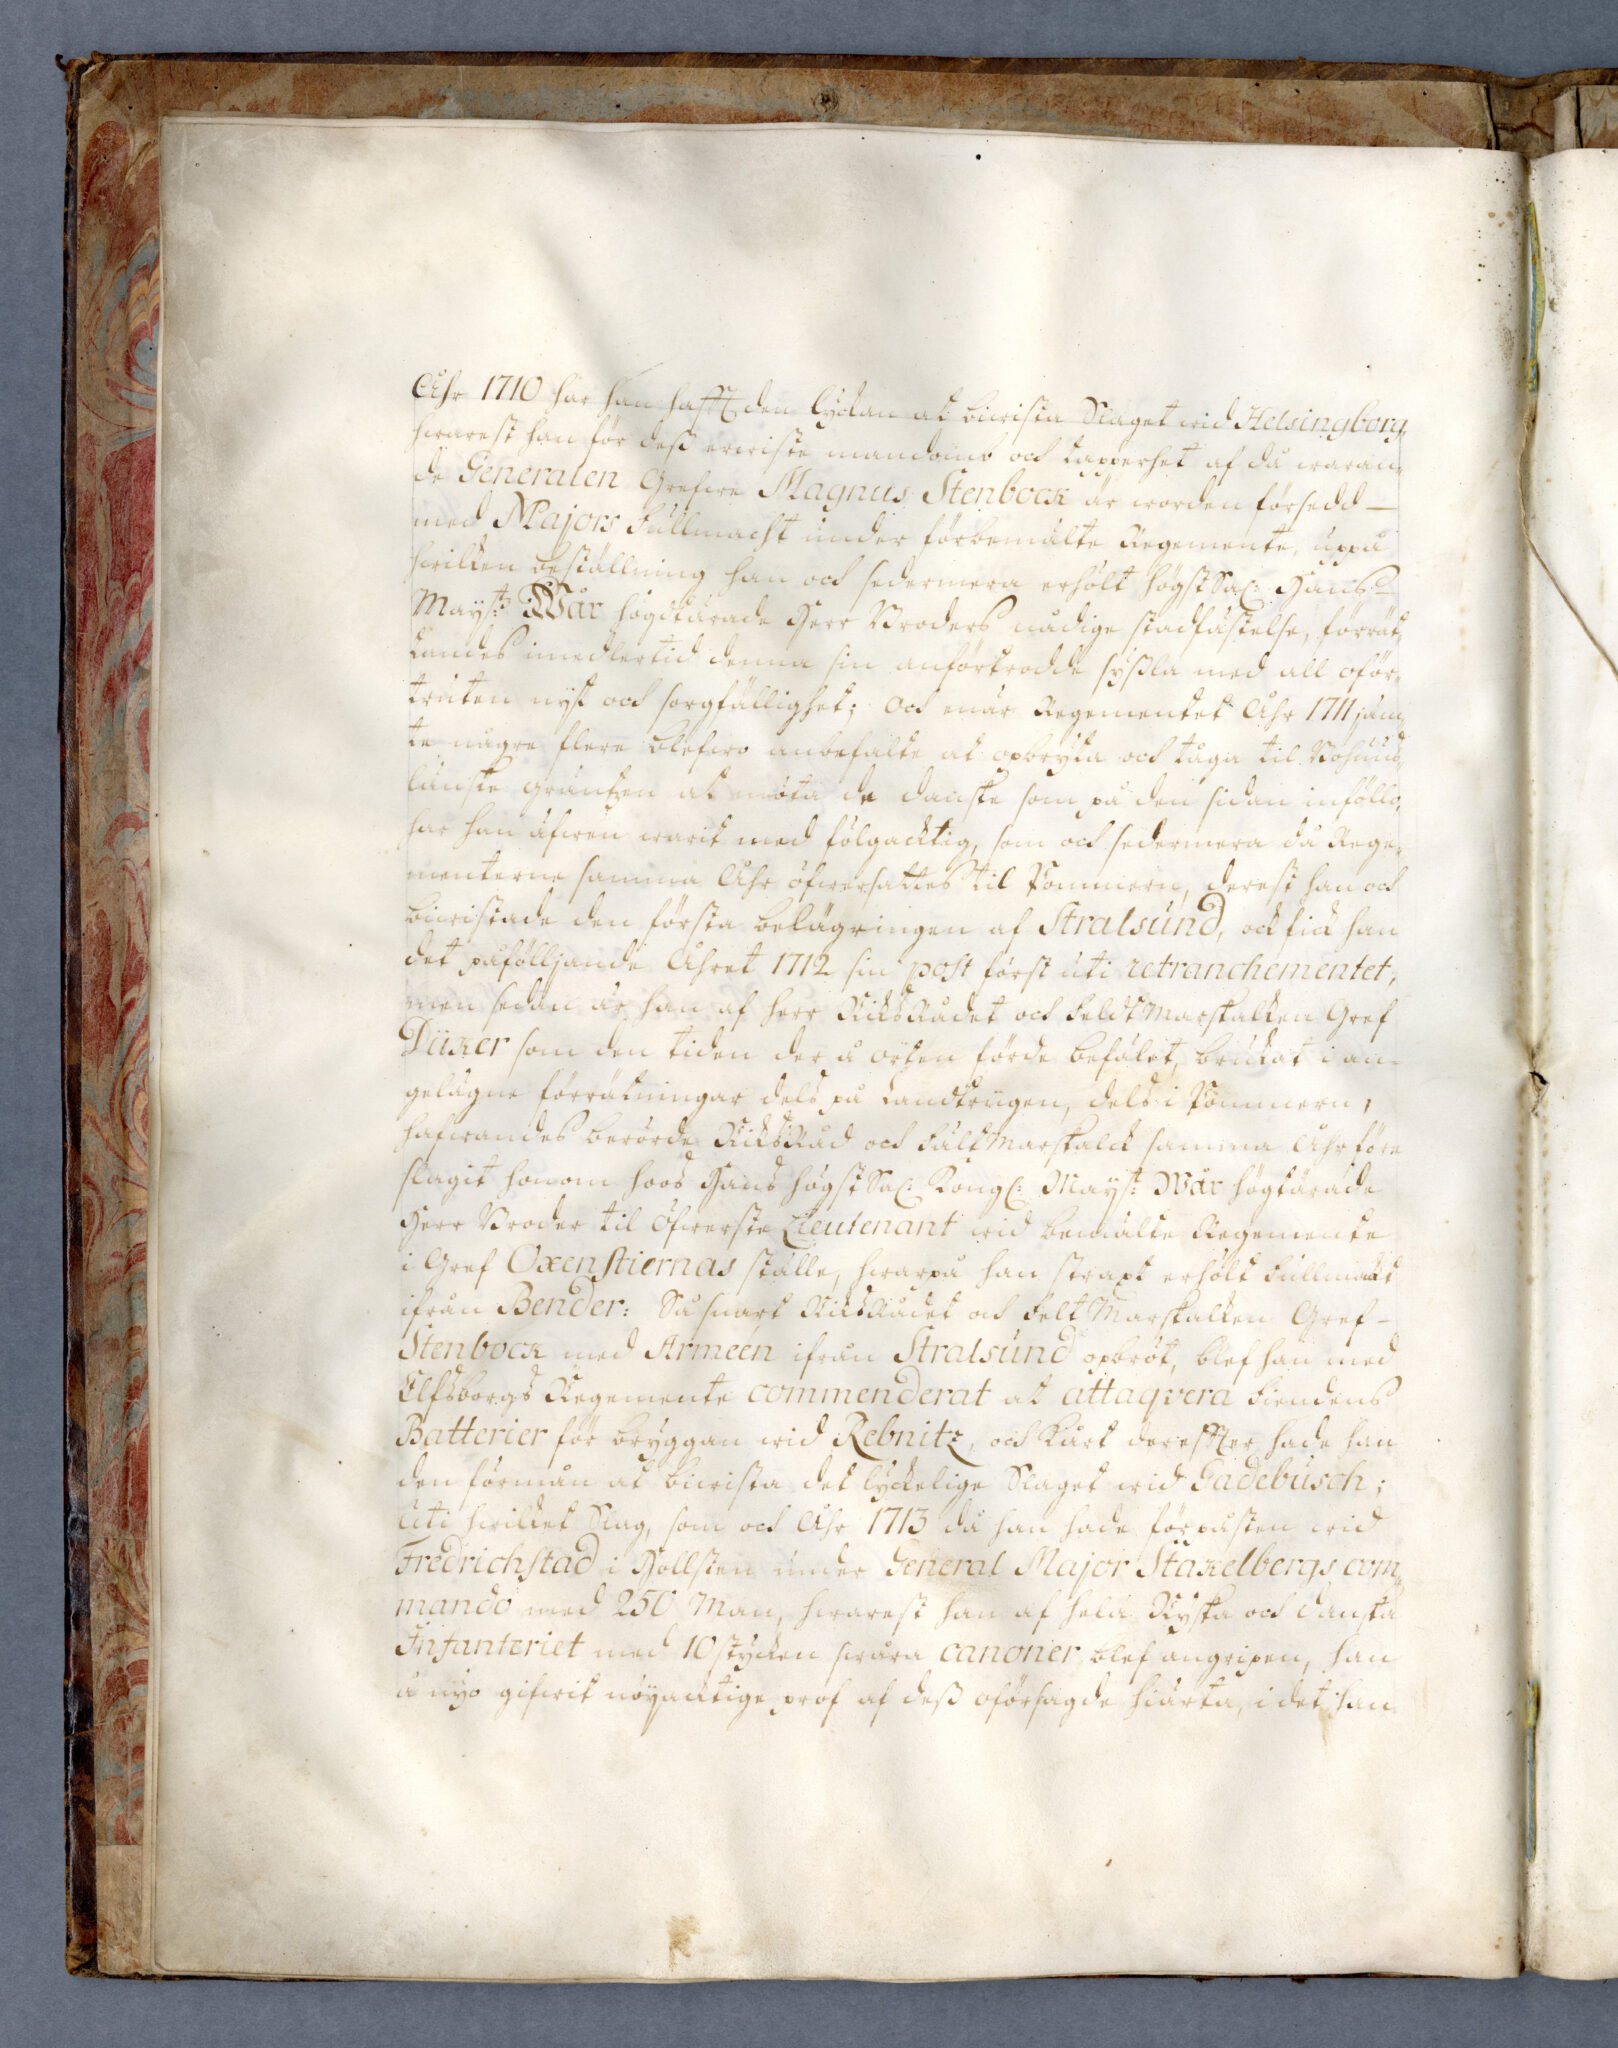 Åhr 1710 har han hafft den lyckan at biwista Slaget wid Helsingborg,
hwarest han för deß erwiste mandomb och tapperhet af då waran-
de Generalen Grefwe Magnus Stenbock är worden försedd
med Majors Fullmacht under förbemälte Regemente, uppå
hwilken beställning han och sedermera erhölt högst Sal: Hans
Mayst:tz Wår högtährade Herr Broders nådige stadfästelse, förrät-
tandes imedlertid denna sin anförtrodde syßla med all oför-
truten nyst och sorgfällighet; och enär Regementet Åhr 1711 jäm-
te några flere blefwo anbefalte at opbryta och tåga til Bohus
länske gräntzen at möta de danske som på den sidan inföllo,
har han äfwen warit med fölgacktig, som och sedermera då Rege-
menterne samma Åhr öfwersattes til Pommern, derest han och
biwistade den första belägringen af Stralsund, ock fick han
det påfölljande Åhret 1712 sin post först uti retranchementet,
men sedan är han af herr RiksRådet och Feldt Marskalken Gref
Düker som den tiden der å orten förde befälet, brukat i an-
gelägne förrätningar dels på Landtrügen, dels i Pommern,
hafwandes berörde RiksRåd och Fält Marskalck samma Åhr före
slagit honom hoos Hans högst Sal: Kongl: Mayst: Wår högtärade
Herr Broder til Öfwerste Lieutenant wid bemälte Regemente
i Gref Oxenstiernas ställe, hwarpå han strapt erhölt Fullmackt
ifrån Bender: Så snart RiksRådet och Felt Marskalken Gref
Stenbock med Armeén ifrån Stralsund opbröt, blef han med
Elfsborgs Regemente commenderat at attaqvera Fiendens
Batterier för bryggan wid Rebnitz, och kürt dereffter hade han
den förmån at biwista det lyckelige Slaget wid Gadebusch;
Uti hwilket Slag, som och Åhr 1713 då han hade förpåsten wid
Fredrichstad i Hollsten under General Major Stakelbergs com-
mando med 250 Man, hwarest han af hela Ryska och danska
Infanteriet med 10 stycken swåra canoner blef angripen, han
å nyo gifwit nöyacktige prof af deß oförsagde hiärta, i det han